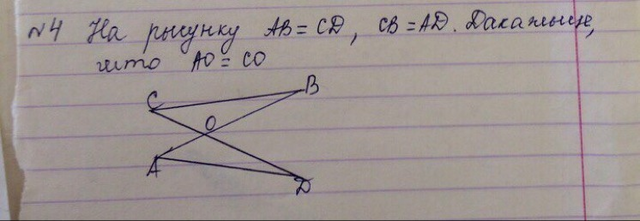 №4 На рысунку AB = CD, CB = AD. Дакажыце,
што AO = CO
C
B
O
A
D